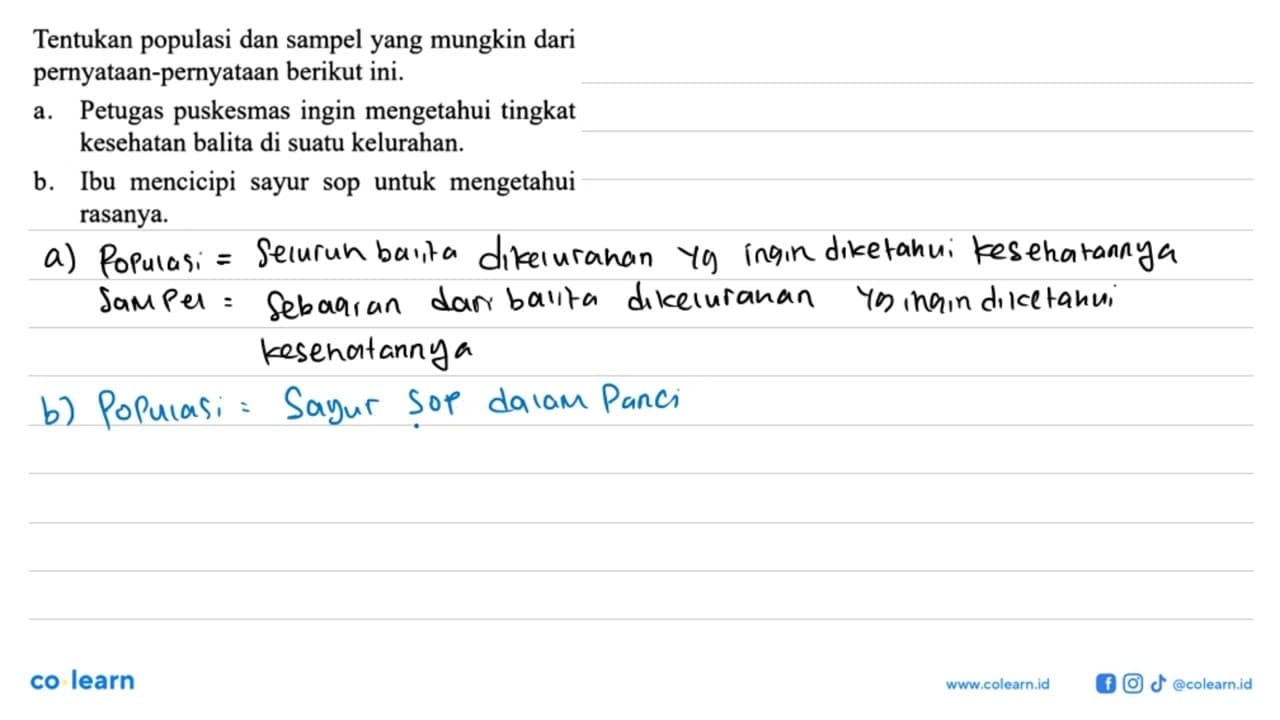 Tentukan populasi dan sampel yang mungkin dari
pernyataan-pernyataan berikut ini.
a. Petugas puskesmas ingin mengetahui tingkat
kesehatan balita di suatu kelurahan.
b. Ibu mencicipi sayur sop untuk mengetahui
rasanya.
a) Populasi = Seluruh balita dikelurahan yg ingin diketahui kesehatannya
Sampel = Sebagian dari balita dikelurahan yg ingin diketahui
kesehatannya
b) Populasi = Sayur Sop dalam Panci
co learn
www.colearn.id @colearn.id